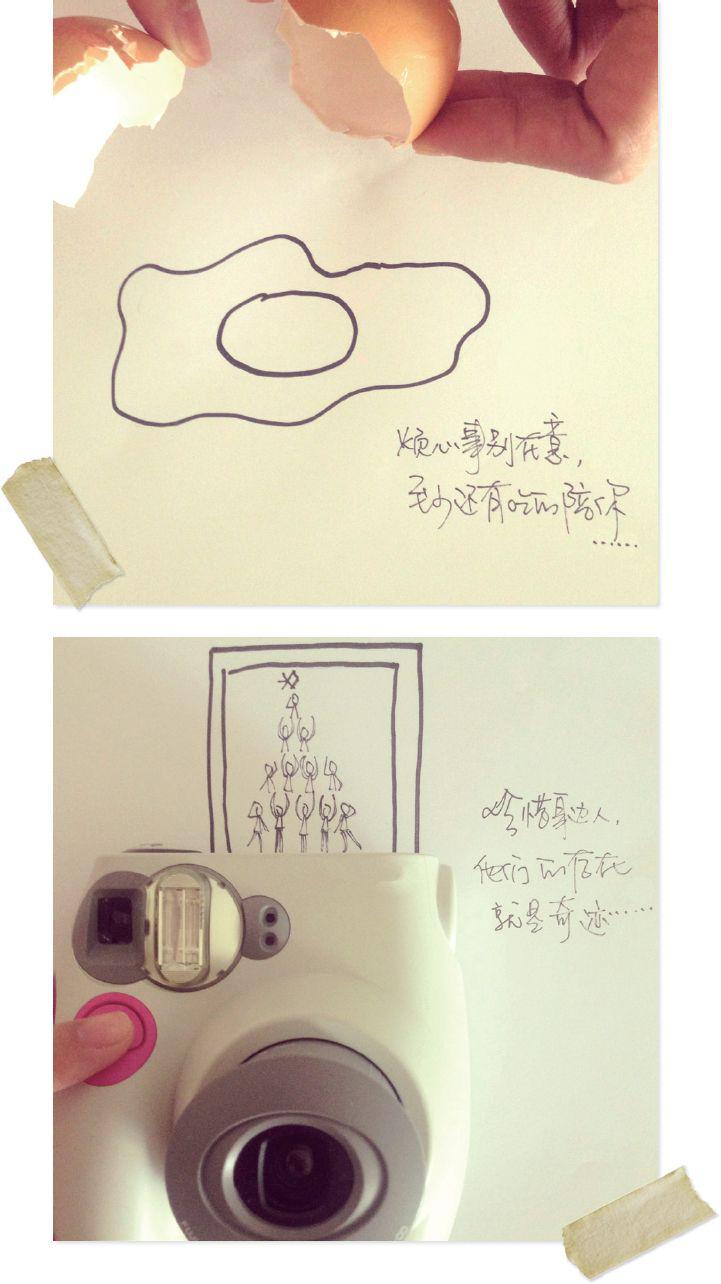 烦心事别在意，
至少还有吃的陪你
……
珍惜身边人，
他们的存在
就是奇迹……